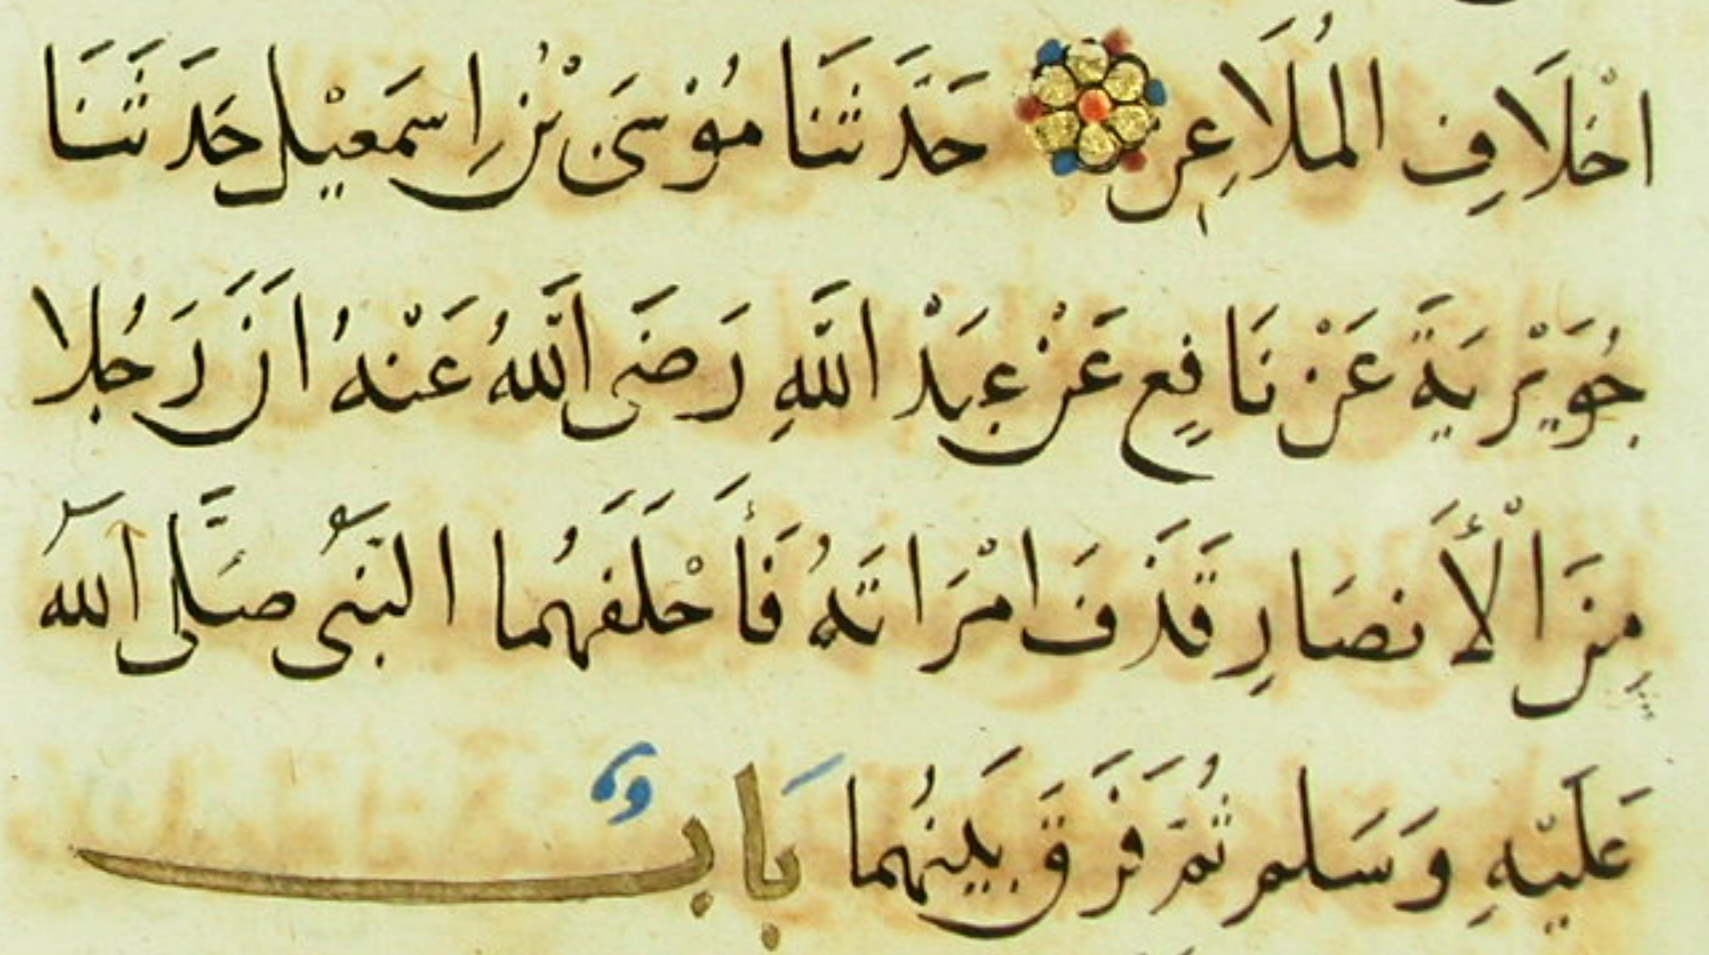 احْلَافِ المُلَاعِنِ حَدَّثَنَا مُوْسَى بْنُ اِسمَعِيْل حَدَثَنَا
جُوَيْرِيَةَ عَنْ نَافِعٍ عَنْ عَبْدِ اللَّهِ رَضَى اللَّهُ عَنْهُ اَنَ رَجُلا
مِنَ الْأَنصَارِ قَذَفَ امْرَاتَهُ فَأَحْلَفَهُما النَبِىُّ صَلَّى اللّٰه
عَلَيْهِ وَسَلم ثُمَ فَرَقَ بَينَهُما بَابٌ